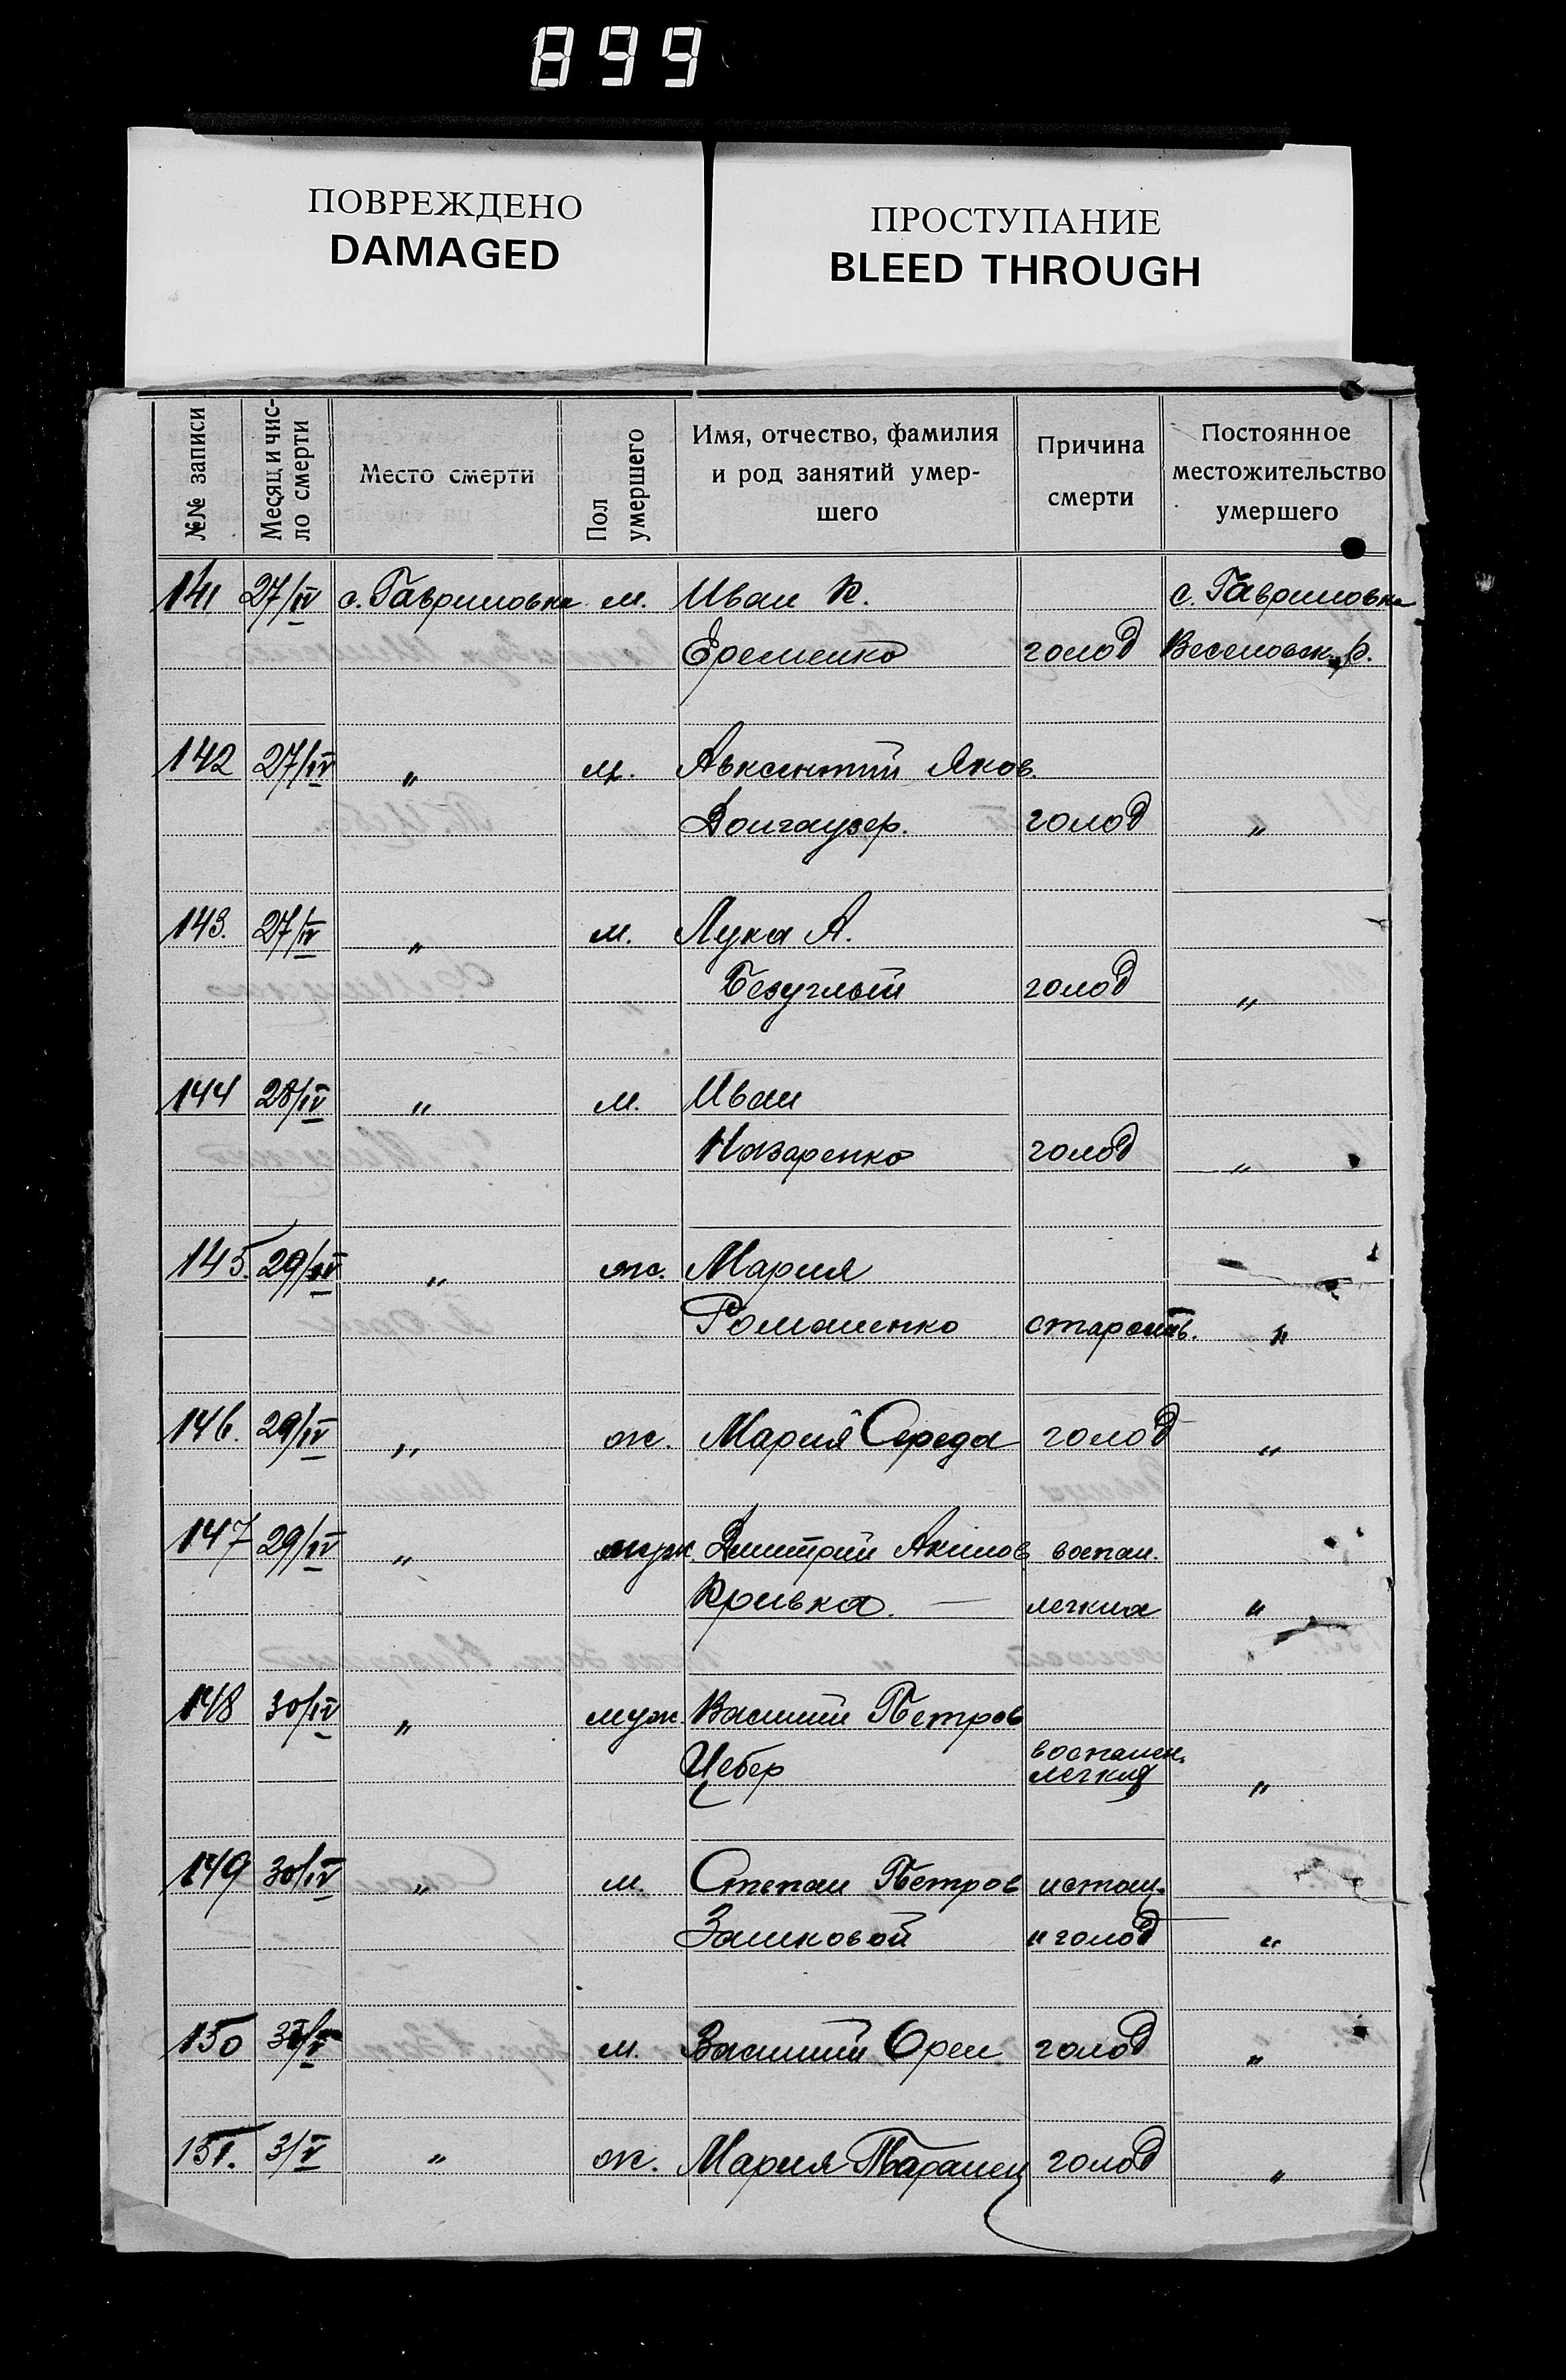 899
ПОВРЕЖДЕНО
DAMAGED
ПРОСТУПАНИЕ
BLEED THROUGH
№№ записи
Месяц и чис-
ло смерти
Место смерти
Пол
умершего
Имя, отчество, фамилия
и род занятий умер-
шего
Причина
смерти
Постоянное
местожительство
умершего
141 27/IV с. Гавриловка м. Иван К. с. Гавриловка
Еременко голод Веселовск. р.
142 27/IV " м. Авксентий Яков.
Долгаузер. голод "
143. 27/IV " м. Лука А.
Безуглый голод "
144 28/IV " м. Иван
Назаренко голод "
145. 29/IV " ж. Мария
Романенко старость. "
146. 29/IV " ж. Мария Середа голод "
147 29/IV " муж Дмитрий Акимов воспал.
Кривка. — легких "
148 30/IV " муж. Василий Петров
Цебер воспален.
легких "
149 30/IV " м. Степан Петров истощ.
"голод "
150 м. Василий Орел голод "
151. 3/V " ж. Мария Таранец голод "